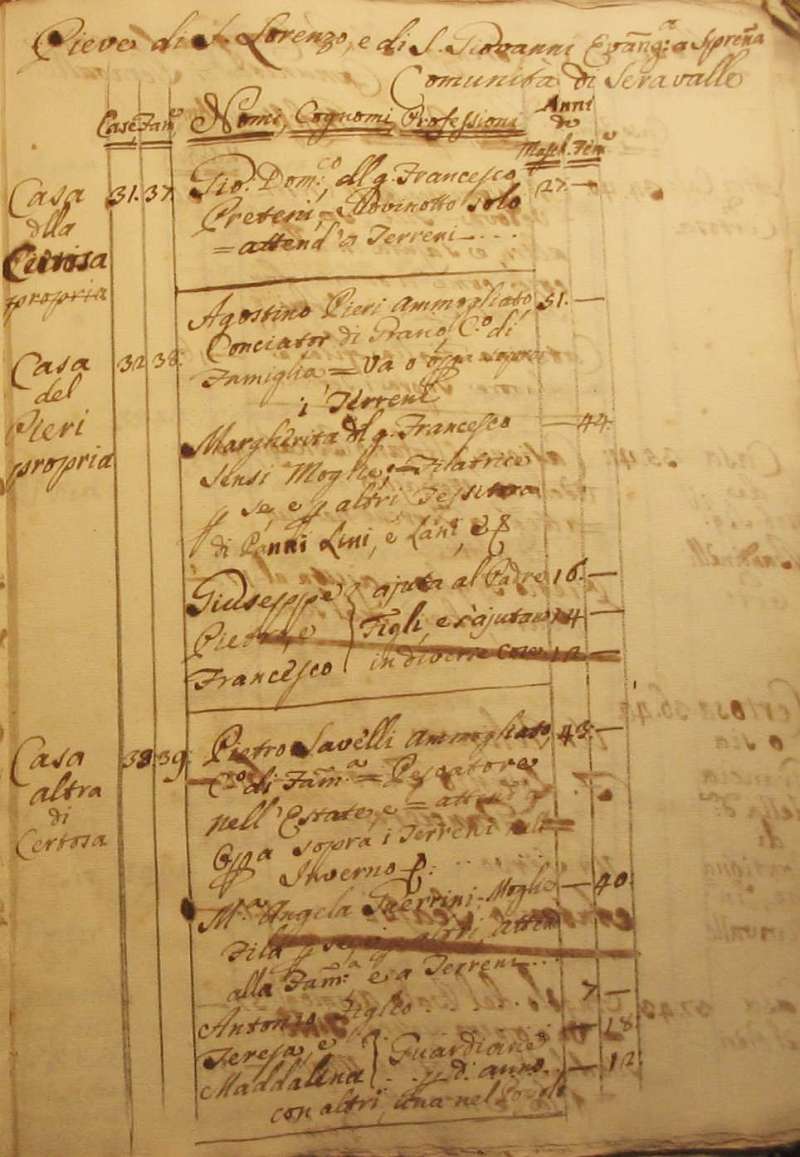 Pieve di S. Lorenzo, e di S. Giovanni Evang:ª a
Comunità di Seravalle
Case Fam:ª Nomi, Cognomi, Professioni Anni de
Masch. Fem:ª
Casa della Certosa propria 31. 37. Gio: Dom:co dll q. Francesco 27. —
Preteni, = Giovinotto solo
= attend' a Terreni . . . .
Casa del Pieri propria 32 38. Agostino Pieri Ammogliato 51. —
Conciator di Grano, C:o di
Famiglia = Va o opra sopra
i Terreni
Margherita dl q. Francesco — 44.
Sensi Moglie, = Filatrice
p se, e p altri Tessitora
di Panni Lini, e Lani, &
Giuseppe ajuta al Padre 16. —
Pietro, e Figli, e s'ajutano 14 —
Francesco in diverse cose 12 —
Casa altra di Certosa 39. Pietro Savelli Ammogliato, 43. —
C:o di Fam:ª = Pescatore
nell' Estate, e = attend'
sopra i Terreni
Inverno
M:ª Angela Guerrini - Moglie — 40.
Fila p se, e p altri, atten
alla Fam:ª e a Terreni . . .
Antonio Figlio . . 7 —
Teresa, e Guardiane 18
Maddalena p d. anno . . — 12.
con altri, una nel